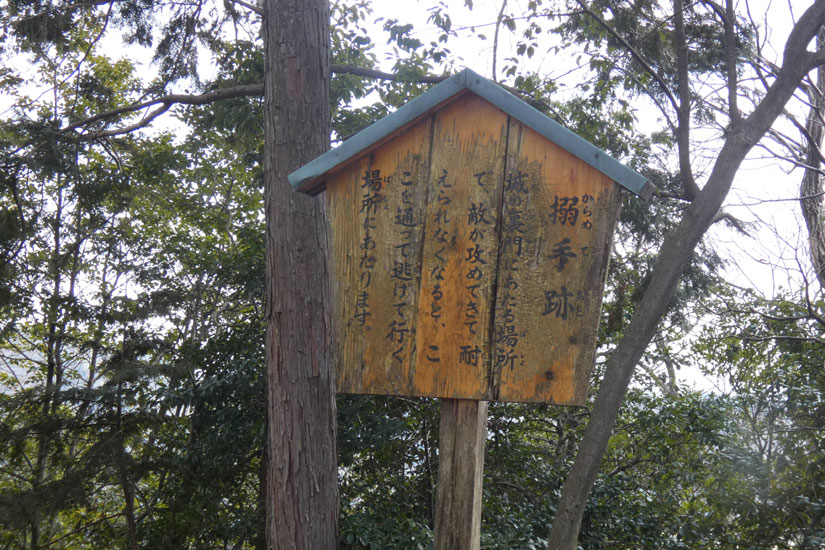 搦手跡
からめ て あと
城の裏門にあたる場所
で、敵が攻めてきて耐
えられなくなると、こ
こを通って逃げて行く
場所にあたります。